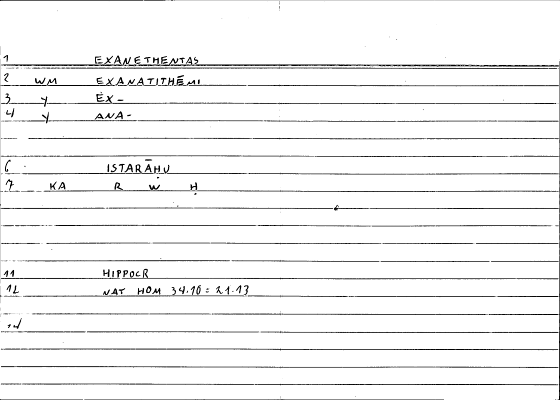 1 EXANETHENTAS
2 WM EXANATITHĒMI
3 Y EX-
4 Y ANA-
6 ISTARĀḤU
7 KA R W Ḥ
11 HIPPOCR
12 NAT HOM 34.10 = 21.13